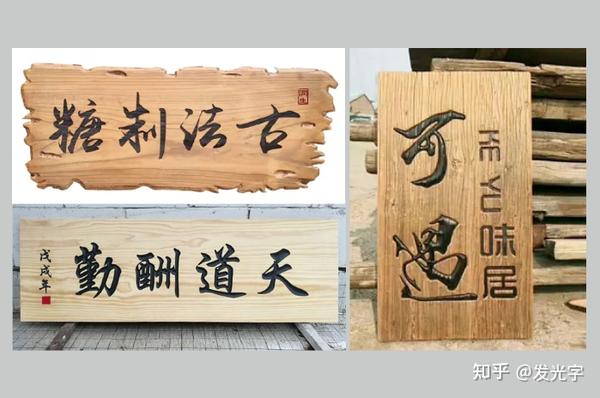 古法制糖
天道酬勤
戊戌年
可遇
味居
知乎 @发光字